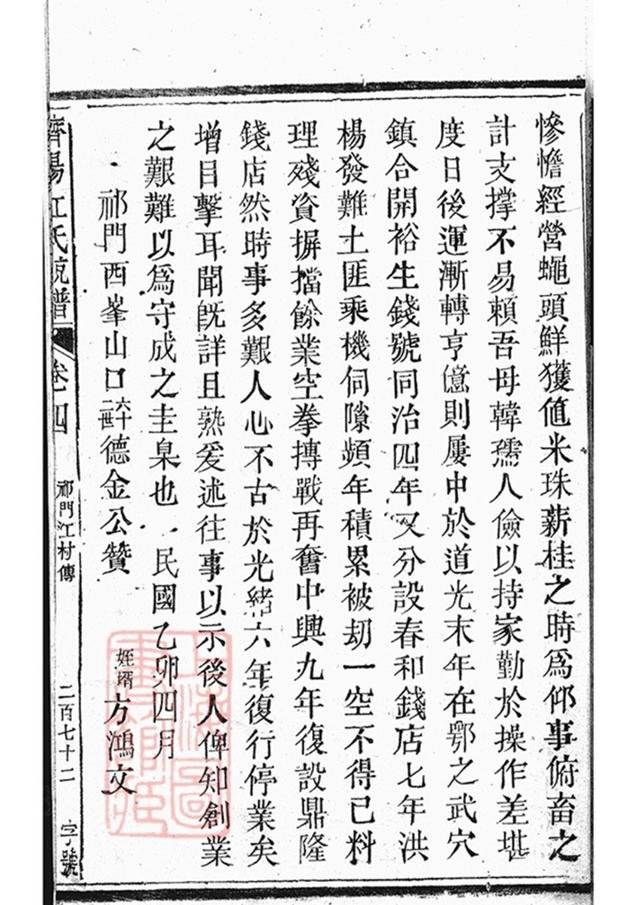 慘憺經營蠅頭鮮獲值米珠薪桂之時爲仰事俯畜之
計支撐不易賴吾母韓孺人儉以持家勤於操作差堪
度日後運漸轉亨億則屢中於道光末年在鄂之武穴
鎮合開裕生錢號同治四年又分設春和錢店七年洪
楊發難土匪乘機伺隙頻年積累被刼一空不得已料
理殘資摒擋餘業空拳搏戰再奮中興九年復設鼎隆
錢店然時事多艱人心不古於光緒六年復行停業矣
增目擊耳聞旣詳且熟爰述往事以示後人俾知創業
之艱難以爲守成之圭臬也 民國乙卯四月
祁門西峯山口六十二世德金公贊
姪壻方鴻文
濟陽江氏統譜 卷四 祁門江村傳 二百七十二 字號